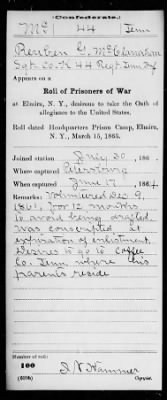 (Confederate.)
Mc 44 Tenn
Reuben G. McClanahan
Sgt. Co. K 44 Regt. Tenn. Inf.
Appears on a
Roll of Prisoners of War
at Elmira, N. Y., desirous to take the Oath of
allegiance to the United States.
Roll dated Headquarters Prison Camp, Elmira,
N. Y., March 15, 1865.
Joined station July 30, 186
Where captured Petersburg
When captured June 17, 1864
Remarks: Volunteered Dec 9,
1861, for 12 months
to avoid being drafted.
was conscripted at
expiration of enlistment.
Desires to go to Coffee
Co. Tenn where his
parents reside
No. of roll:
100
(639b) Copyist.